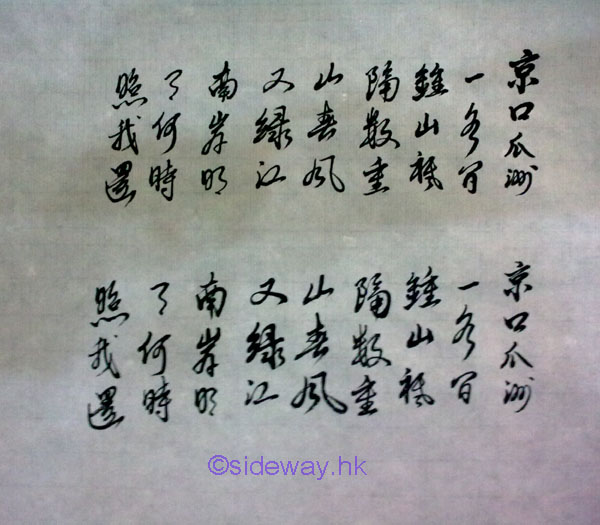 京口瓜洲
一水間
鍾山祗
隔數重
山春風
又綠江
南岸明
月何時
照我還
京口瓜洲
一水間
鍾山祗
隔數重
山春風
又綠江
南岸明
月何時
照我還
©sideway.hk